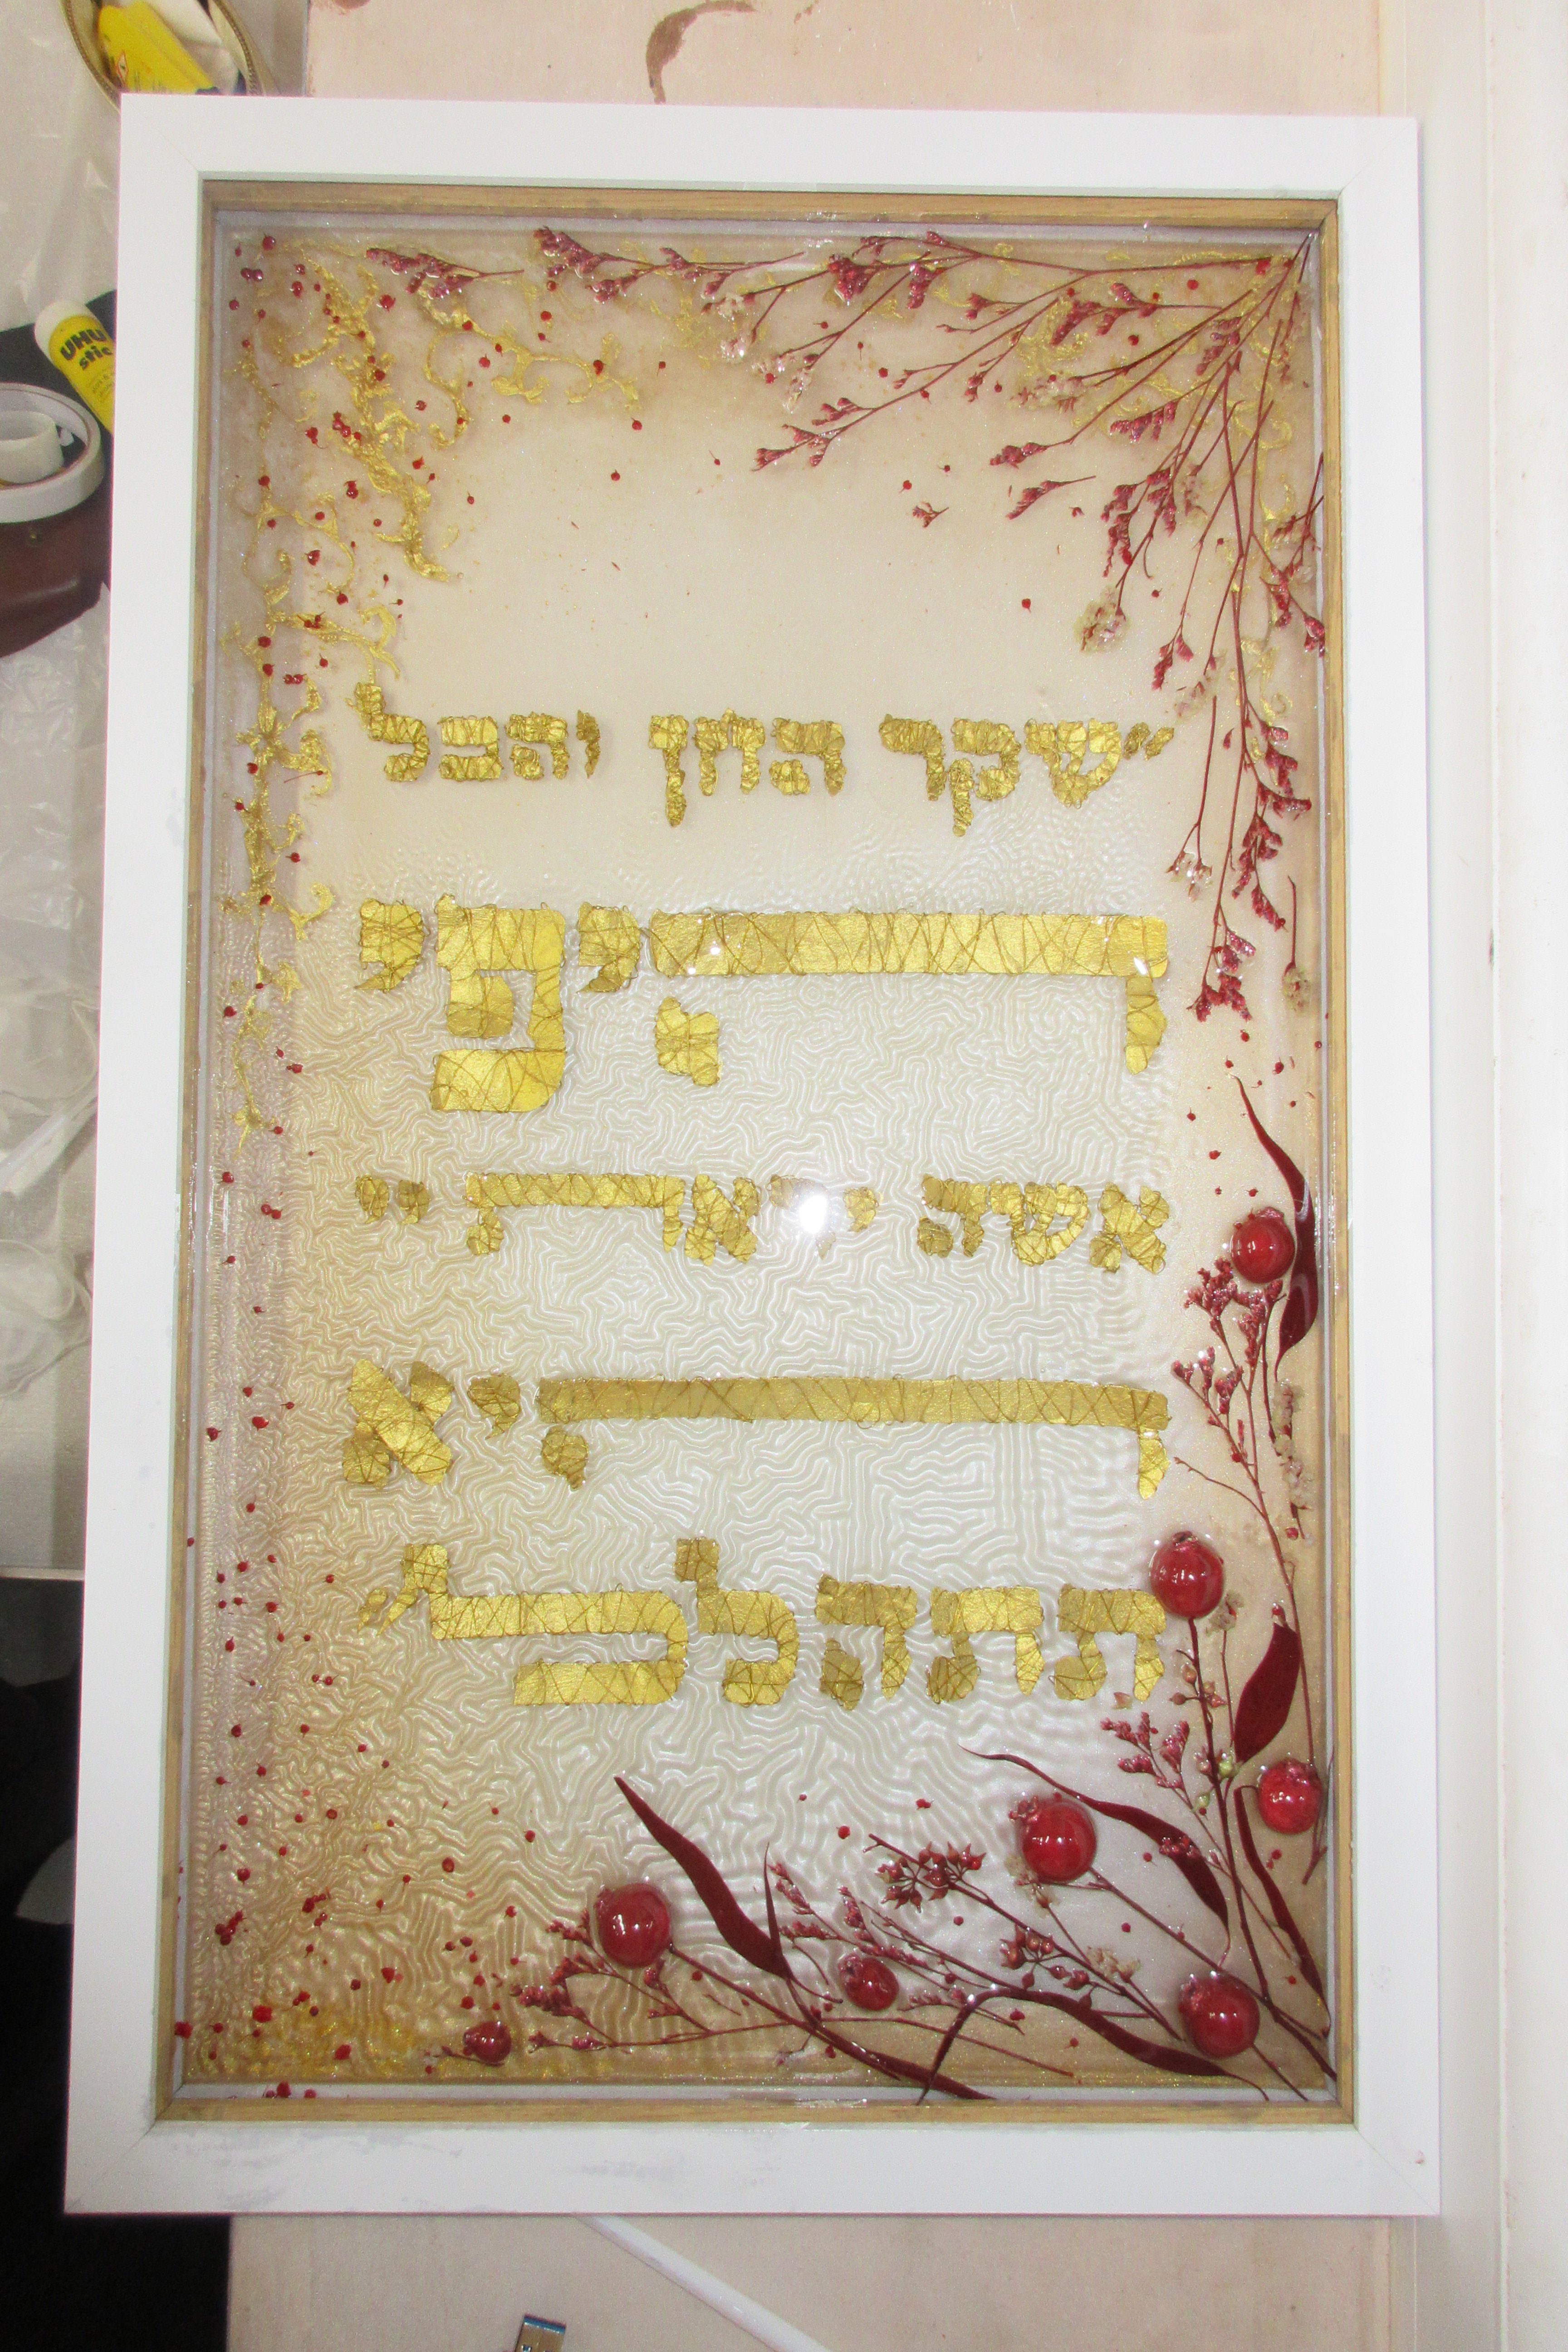 ״שקר החן והבל
היפי
אשה יראת יי
היא
תתהלל״
UHU
stic